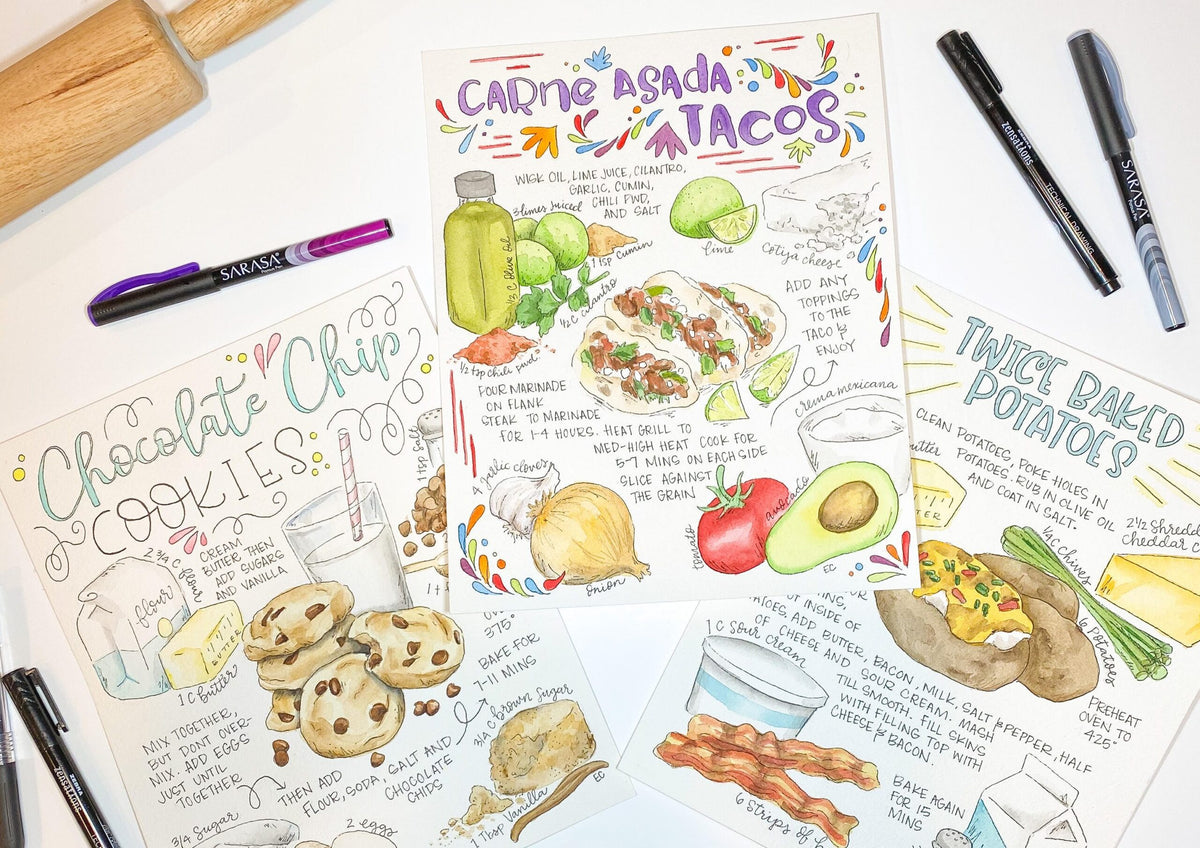 CARNE ASADA
TACOS
WISK OIL, LIME JUICE, CILANTRO,
GARLIC, CUMIN,
CHILI PWD,
AND SALT
3 limes juiced
1 tsp cumin
1/3 C Olive Oil
1/2 C cilantro
1/2 tsp chili pwd
lime
Cotija cheese
ADD ANY
TOPPINGS
TO THE
TACO &
ENJOY
POUR MARINADE
ON FLANK
STEAK TO MARINADE
FOR 1-4 HOURS. HEAT GRILL TO
MED-HIGH HEAT COOK FOR
5-7 MINS ON EACH SIDE
SLICE AGAINST
THE GRAIN
crema mexicana
4 garlic cloves
onion
tomato
avocado
EC
Chocolate Chip
COOKIES
2 3/4 C flour
flour
CREAM
BUTTER THEN
ADD SUGARS
AND VANILLA
1 tsp salt
BUTTER
1 C butter
MIX TOGETHER,
BUT DONT OVER-
MIX. ADD EGGS
JUST UNTIL
TOGETHER
THEN ADD
FLOUR, SODA, SALT AND
CHOCOLATE
CHIPS
375°
BAKE FOR
7-11 MINS
3/4 C brown Sugar
1 Tbsp Vanilla
EC
3/4 Sugar
2 eggs
TWICE BAKED
POTATOES
CLEAN POTATOES, POKE HOLES IN
POTATOES. RUB IN OLIVE OIL
AND COAT IN SALT.
1/4 C chives
2 1/2 shredd
cheddar c
6 Potatoes
PREHEAT
OVEN TO
425°
OF INSIDE OF
ADD BUTTER, BACON, MILK, SALT & PEPPER, HALF
OF CHEESE AND SOUR CREAM. MASH
TILL SMOOTH. FILL SKINS
WITH FILLING TOP WITH
CHEESE & BACON.
1 C Sour cream
6 Strips of b
BAKE AGAIN
FOR 15
MINS
SARASA
zensations
TECHNICAL DRAWING
SARASA
zensations